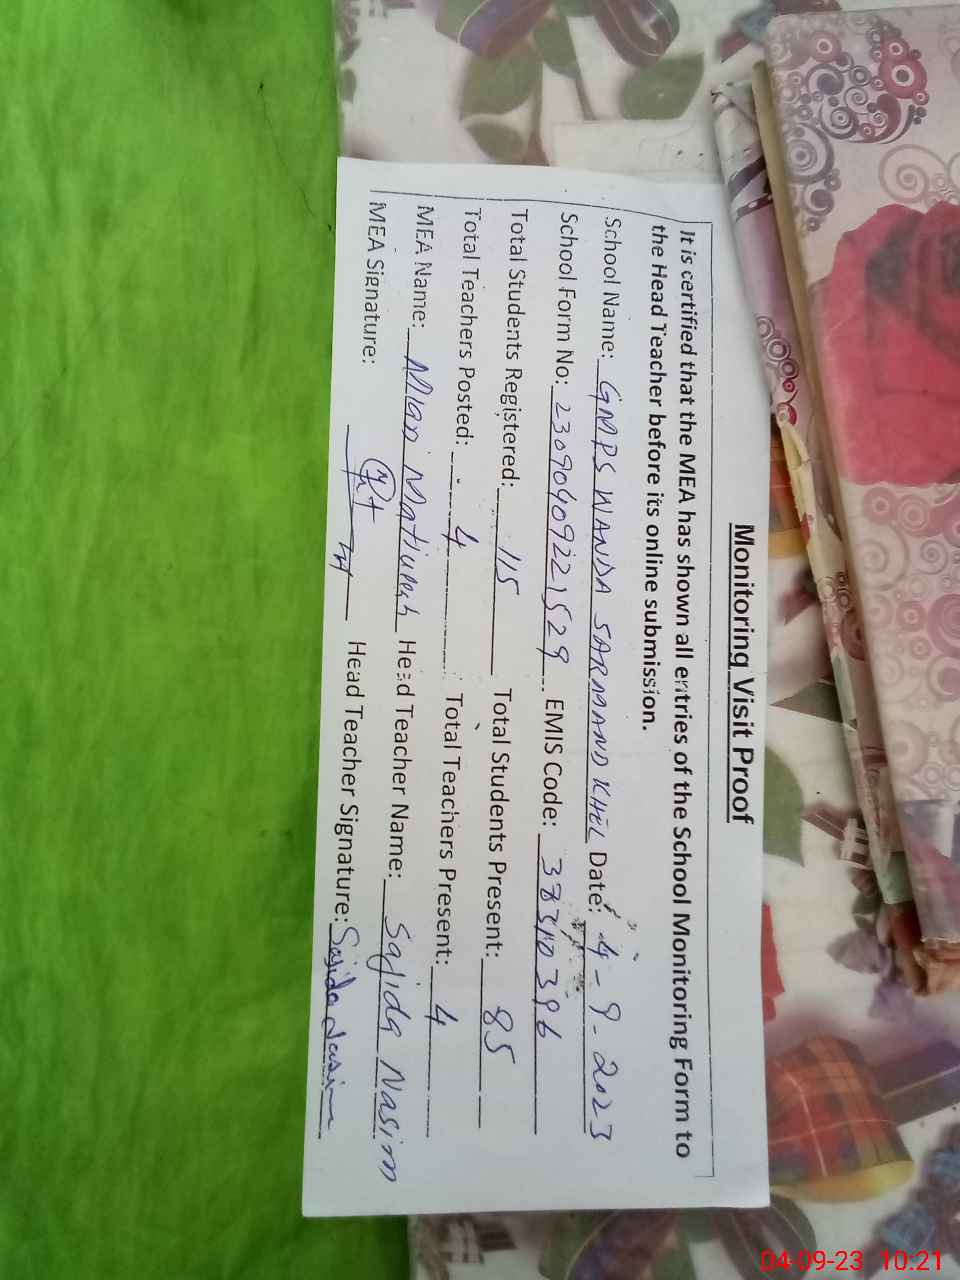 Monitoring Visit Proof
It is certified that the MEA has shown all entries of the School Monitoring Form to
the Head Teacher before its online submission.
School Name: GMPS WANDA SARMAND KHEL Date: 4-9-2023
School Form No: 23090409221529 EMIS Code: 38340396
Total Students Registered: 115 Total Students Present: 85
Total Teachers Posted: 4 Total Teachers Present: 4
MEA Name: Mian Matiullah Head Teacher Name: Sajida Nasim
MEA Signature: Head Teacher Signature: Sajida Nasim
04-09-23 10:21